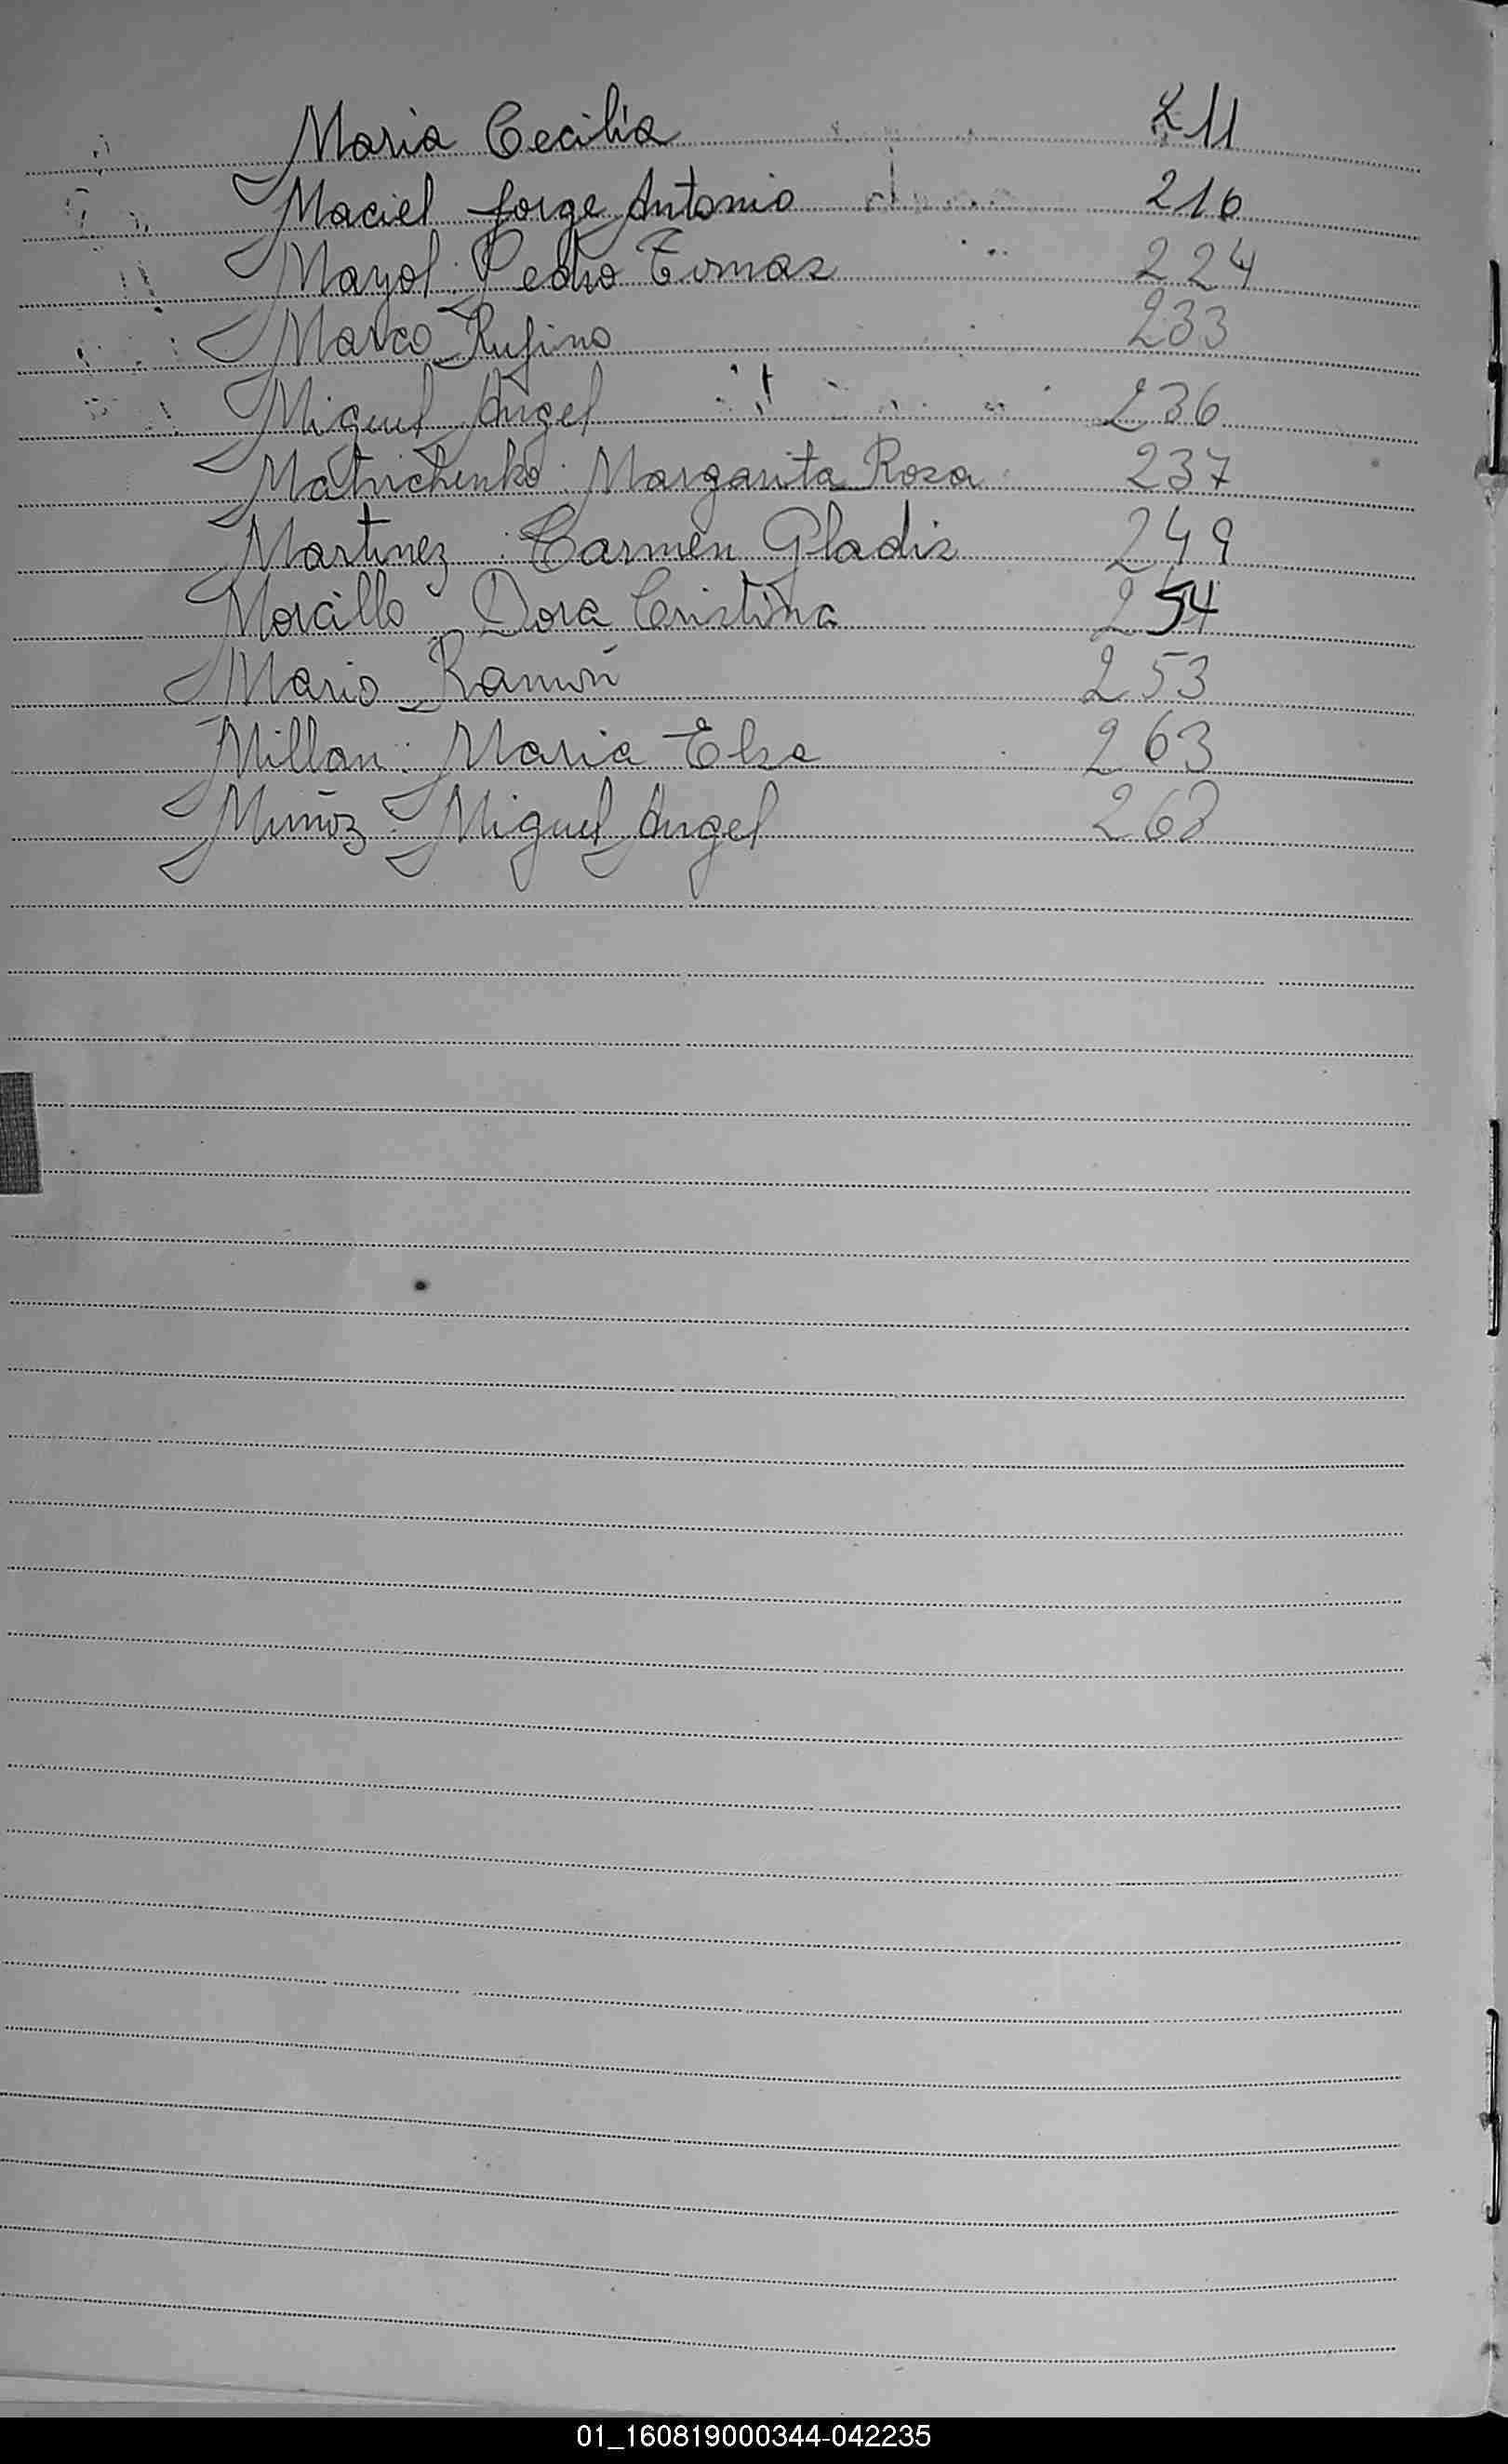 Maria Cecilia 211
Maciel Jorge Antonio 216
Mayol: Pedro Tomas 224
Marco Rufino 233
Miguel Angel 236
Matrichenko: Margarita Rosa 237
Martinez: Carmen Gladis 249
Morcillo Dora Cristina 254
Mario Ramón 253
Millan: Maria Elsa 263
Muñoz: Miguel Angel 268
01_160819000344-042235